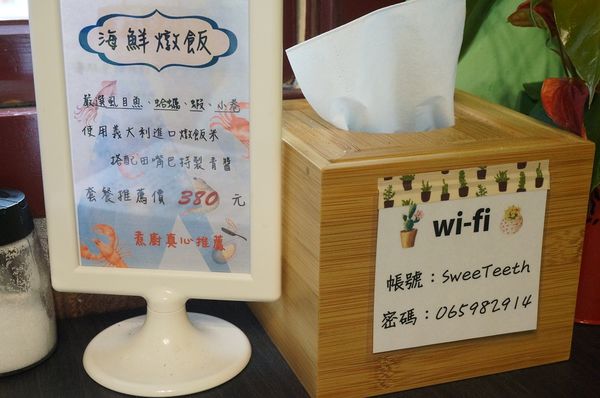 海鮮燉飯
嚴選虱目魚、蛤蠣、蝦、小卷
使用義大利進口燉飯米
搭配田嘴巴特製青醬
套餐推薦價 380 元
煮廚真心推薦
wi-fi
帳號：SweeTeeth
密碼：065982914